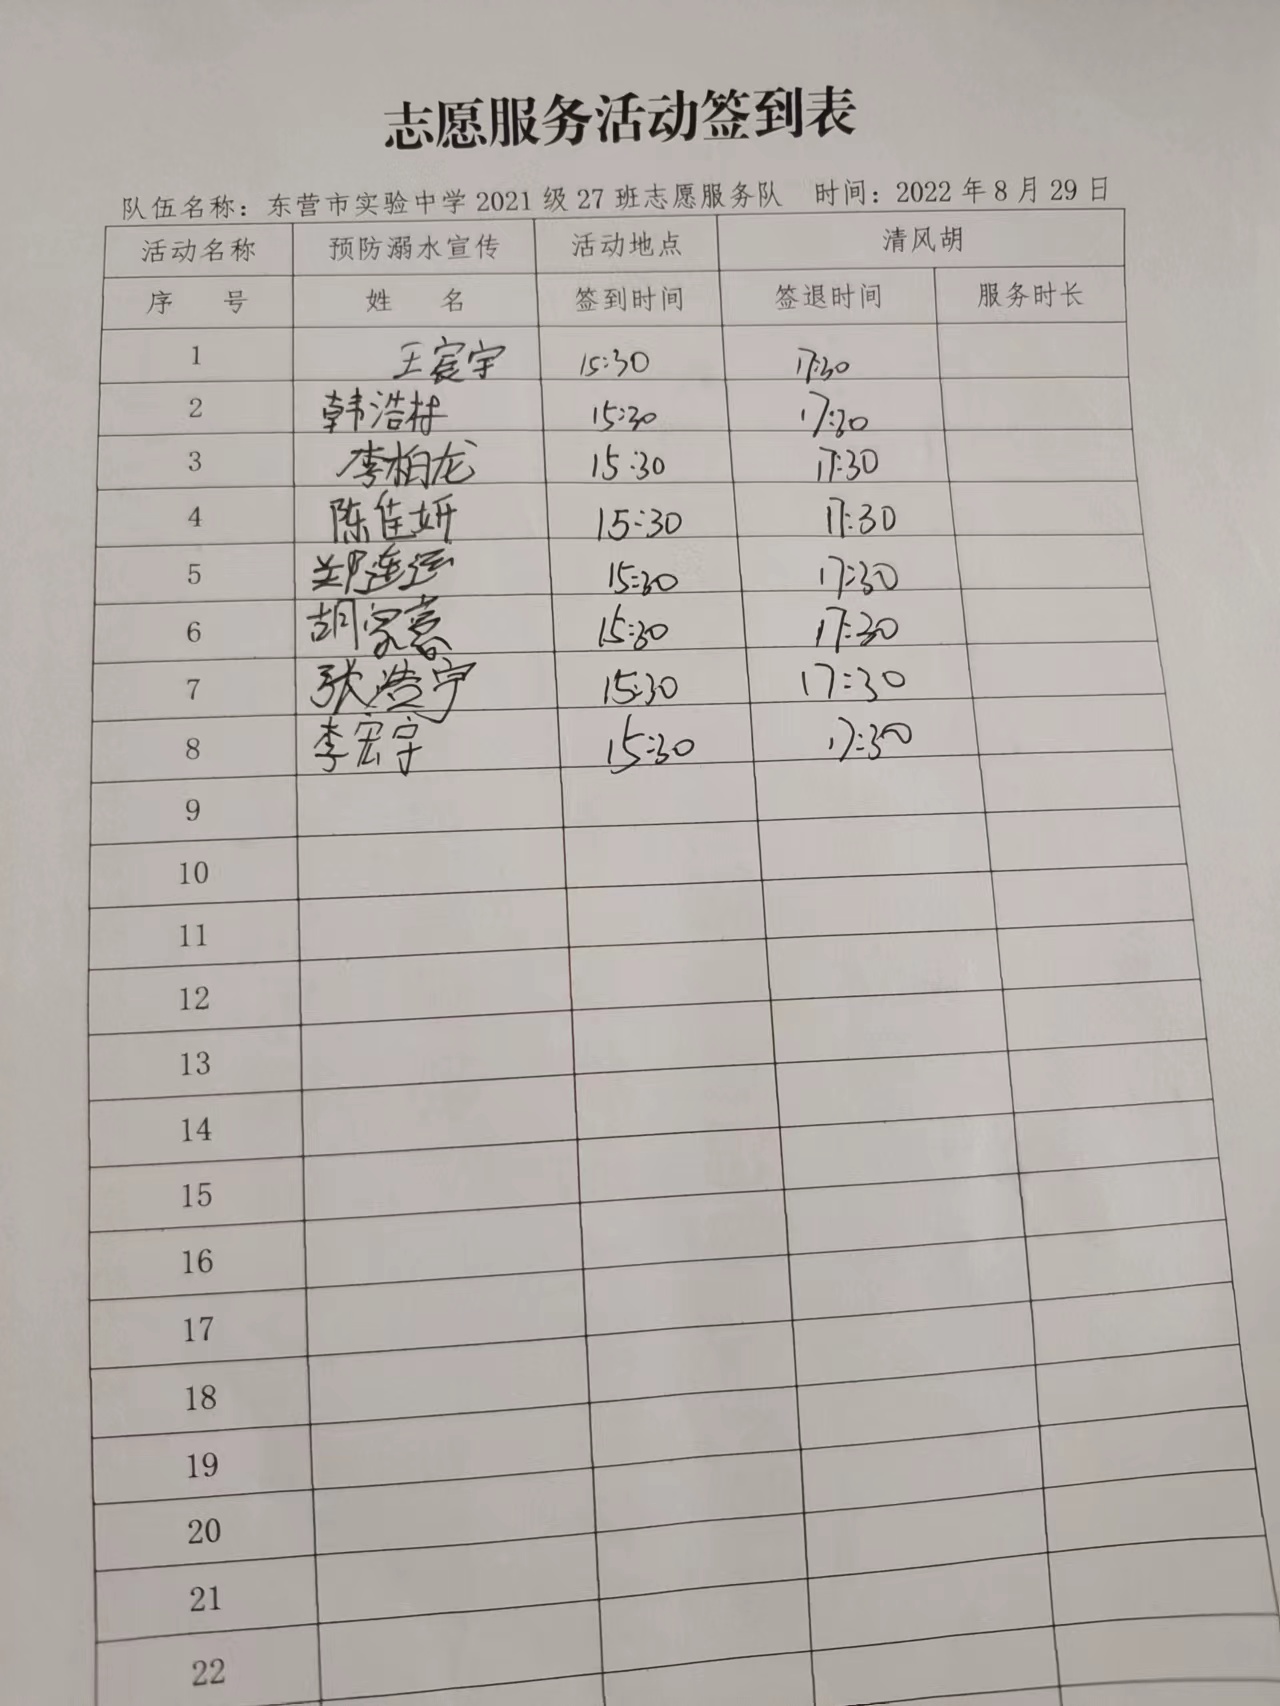 志愿服务活动签到表
队伍名称：东营市实验中学2021级27班志愿服务队 时间：2022年8月29日
活动名称 预防溺水宣传 活动地点 清风胡
序 号 姓 名 签到时间 签退时间 服务时长
1 王宸宇 15:30 17:30
2 韩浩林 15:30 17:30
3 李柏龙 15:30 17:30
4 陈佳妍 15:30 17:30
5 郑连运 15:30 17:30
6 胡家意 15:30 17:30
7 张浩宇 15:30 17:30
8 李宏宇 15:30 17:30
9
10
11
12
13
14
15
16
17
18
19
20
21
22